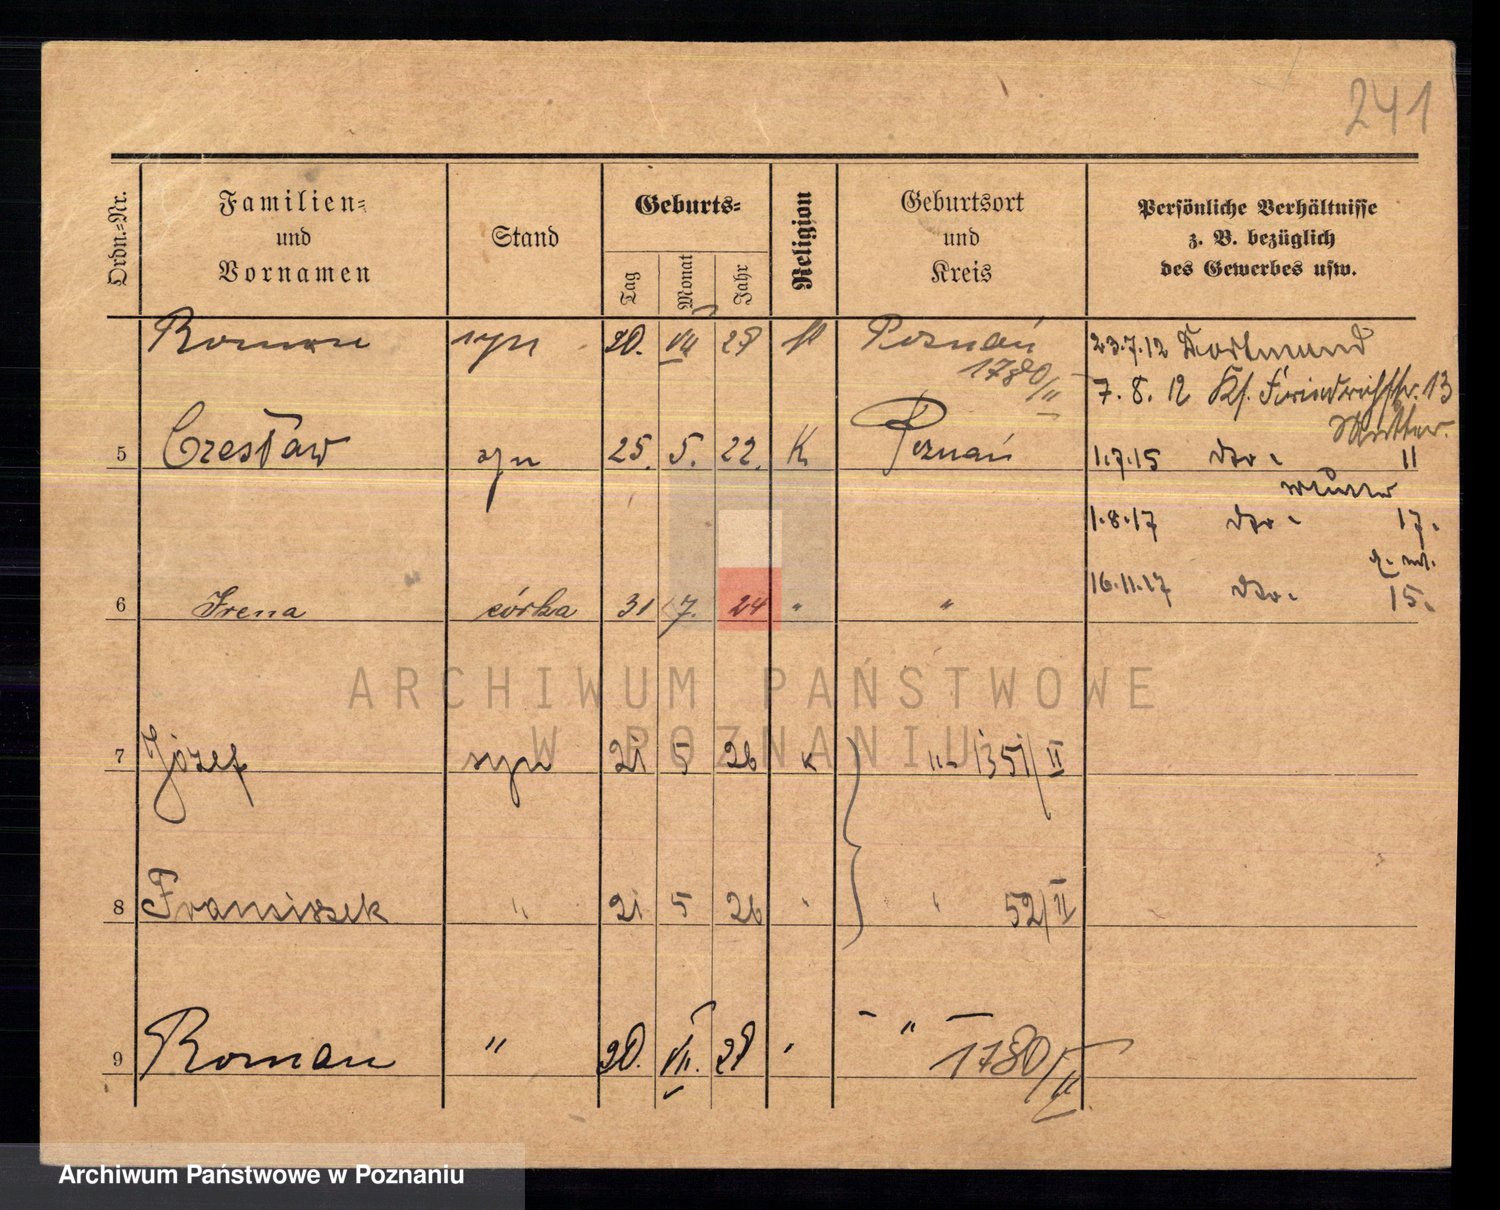 241
Ordn.-Nr.
Familien-
und
Vornamen
Stand
Geburts-
Tag
Monat
Jahr
Religion
Geburtsort
und
Kreis
Persönliche Verhältnisse
z. B. bezüglich
des Gewerbes usw.
Roman syn 20. VII 28 Poznań 23.7.12 Dortmund
1780/II 7. 8. 12 Friedrichstr. 13
5 Czesław syn 25. 5. 22. K Poznań 1.7.15 dto. 11
1.8.17 dto. 17.
16.11.17 dto. 15.
6 Irena córka 31 7. 24 " "
7 Józef syn 21 5 26 K " 1351/II
8 Franciszek " 21 5 26 " " 52/II
9 Roman " 20. VII. 28 " - " - 1780/II
ARCHIWUM PAŃSTWOWE
W POZNANIU
Archiwum Państwowe w Poznaniu